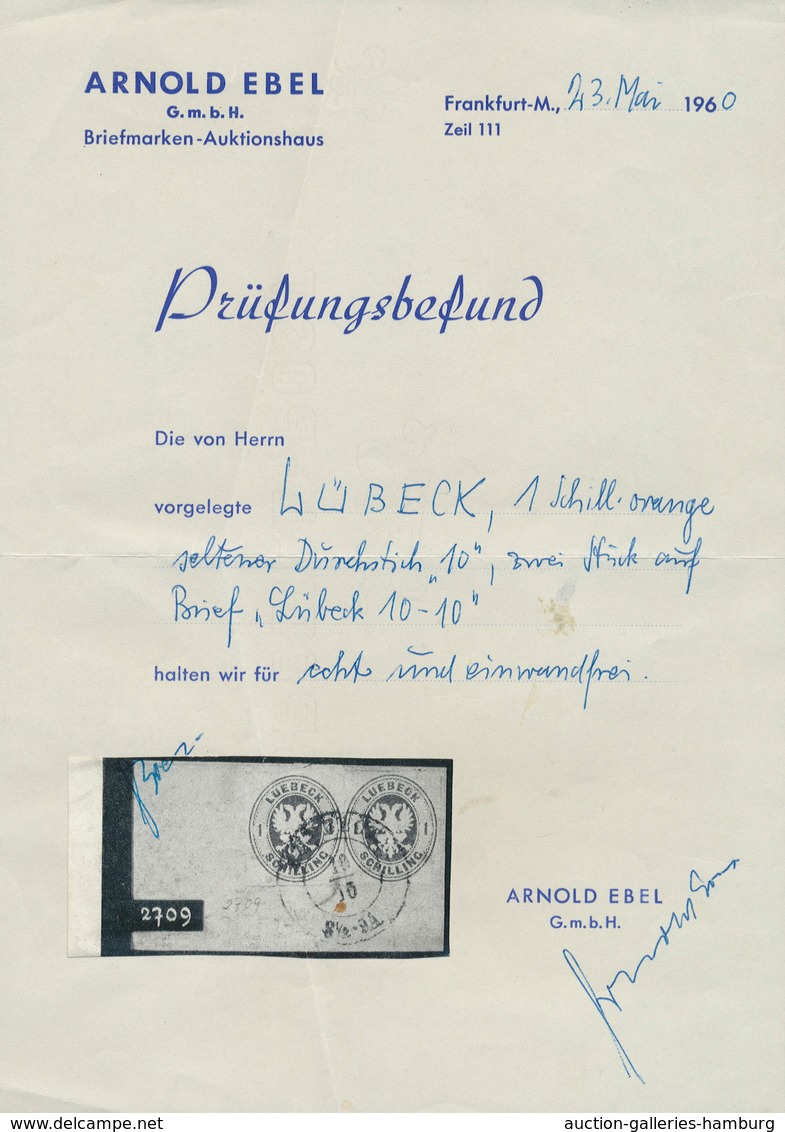 ARNOLD EBEL
G.m.b.H.
Briefmarken-Auktionshaus
Frankfurt-M., 23. Mai 1960
Zeil 111
Prüfungsbefund
Die von Herrn
vorgelegte LÜBECK, 1 Schill. orange
seltener Durchstich "10", zwei Stück auf
Brief "Lübeck 10-10"
halten wir für echt und einwandfrei.
LUEBECK
1
SCHILLING
LUEBECK
1
SCHILLING
10
8½-9A
2709
2709
ARNOLD EBEL
G.m.b.H.
auction-galleries-hamburg